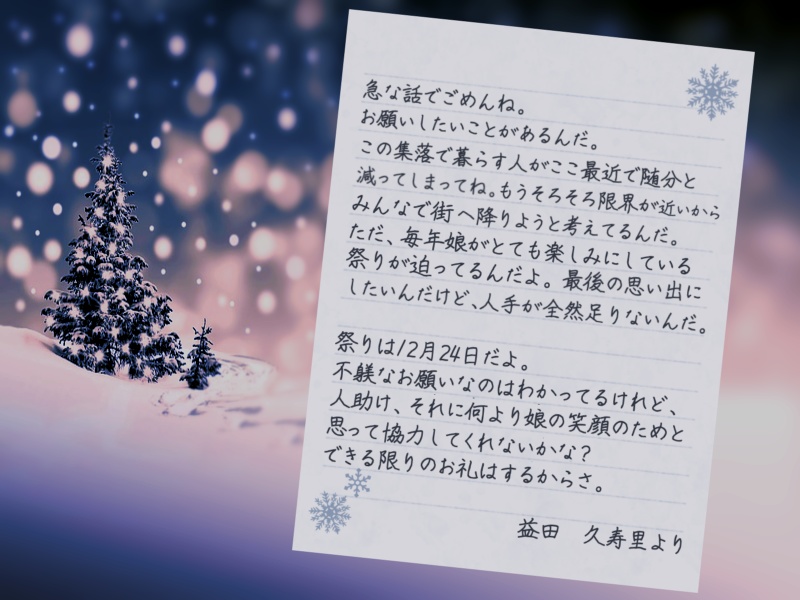 急な話でごめんね。
お願いしたいことがあるんだ。
この集落で暮らす人がここ最近で随分と
減ってしまってね。もうそろそろ限界が近いから
みんなで街へ降りようと考えてるんだ。
ただ、毎年娘がとても楽しみにしている
祭りが迫ってるんだよ。最後の思い出に
したいんだけど、人手が全然足りないんだ。
祭りは12月24日だよ。
不躾なお願いなのはわかってるけれど、
人助け、それに何より娘の笑顔のためと
思って協力してくれないかな?
できる限りのお礼はするからさ。
益田 久寿里より